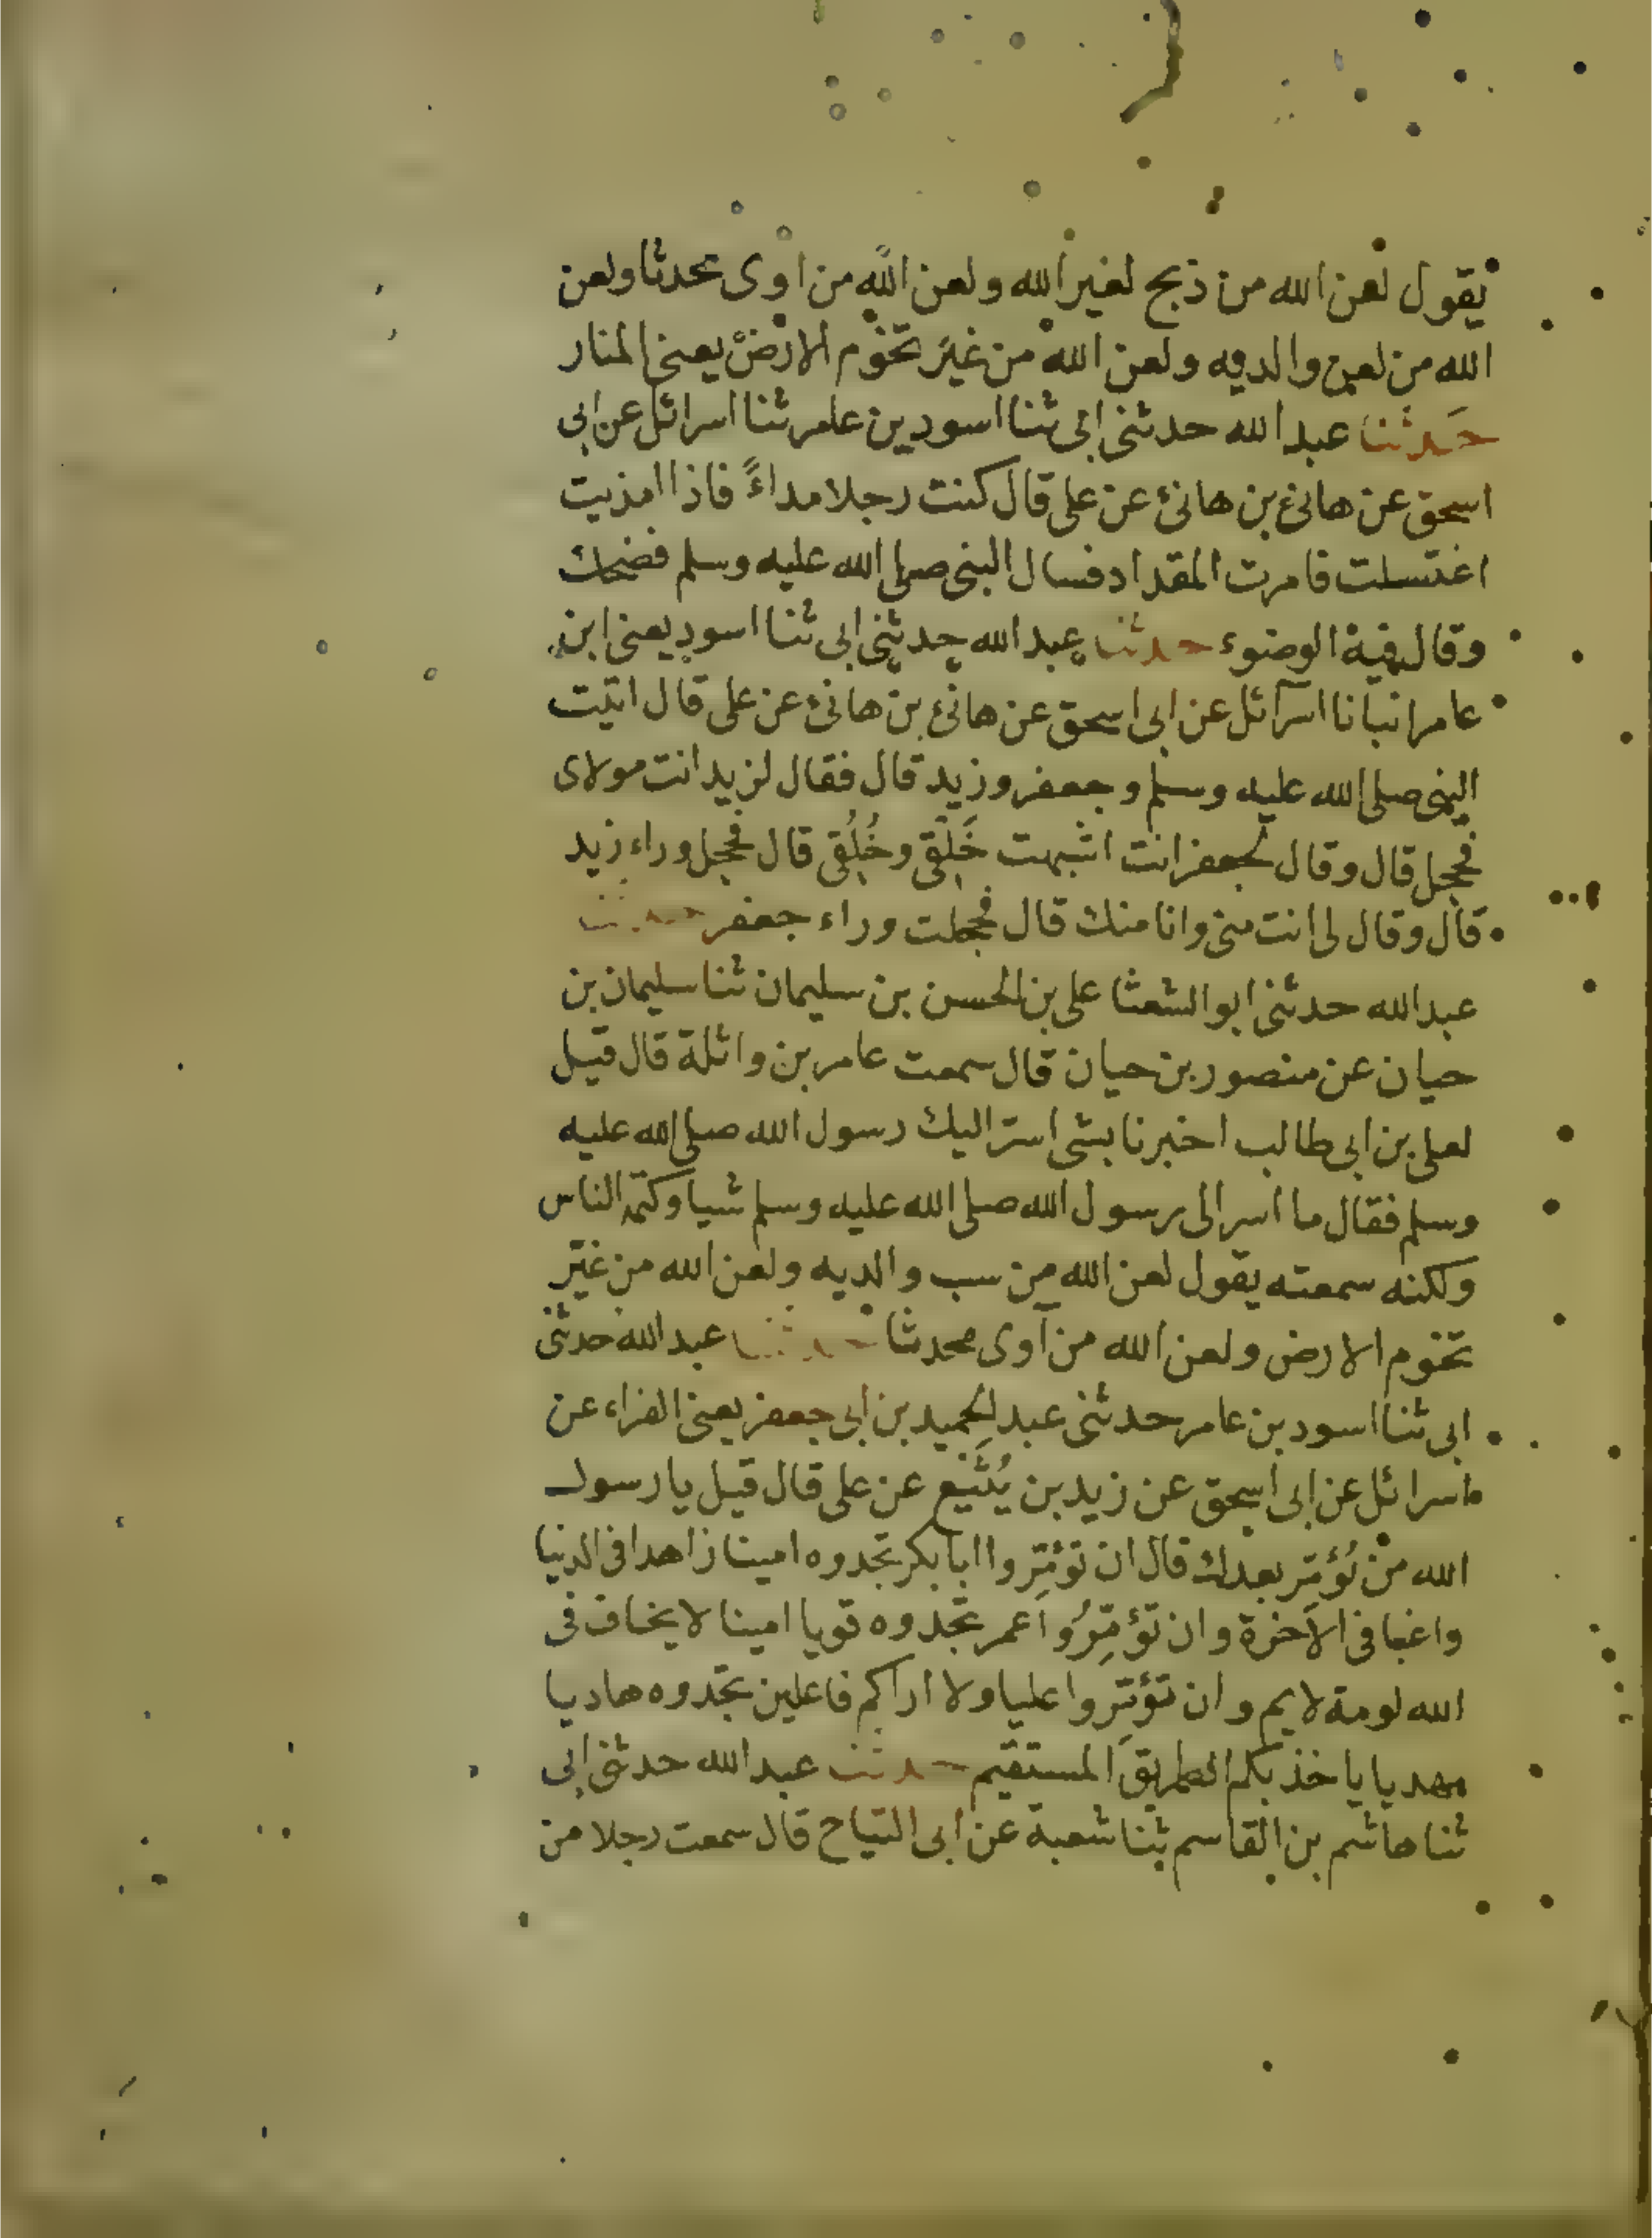 يقول لعن الله من ذبح لغير الله ولعن الله من اوى محدثا ولعن
الله من لعن والديه ولعن الله من غيَر تخوم الارض يعنى المنار
حَدثنا عبد الله حدثنى ابى ثنا اسود بن عامر ثنا اسرائل عن ابى
اسحق عن هانئ بن هانئ عن على قال كنت رجلا مداءً فاذا امذيت
اغتسلت فامرت المقداد فسال النبى صلى الله عليه وسلم فضحك
وقال فيه الوضوء حدثنا عبد الله حدثنى ابى ثنا اسود يعنى ابن
عامر انبانا اسرآئل عن ابى اسحق عن هانئ بن هانئ عن على قال اتيت
النبى صلى الله عليه وسلم وجعفر وزيد قال فقال لزيد انت مولاى
فحجل قال وقال لجعفر انت اشبهت خَلْقى وخُلُقى قال فحجل وراء زيد
قال وقال لى انت منى وانا منك قال فحجلت وراء جعفر حدثنا
عبد الله حدثنى ابو الشعثا على بن الحسن بن سليمان ثنا سليمان بن
حيان عن منصور بن حيان قال سمعت عامر بن واثلة قال قيل
لعلى بن ابى طالب اخبرنا بشى اسرّ اليك رسول الله صلى الله عليه
وسلم فقال ما اسر الى رسول الله صلى الله عليه وسلم شيا وكتمه الناس
ولكنه سمعته يقول لعن الله من سب والديه ولعن الله من غيّر
تخوم الارض ولعن الله من آوى محدثا حدثنا عبد الله حدثنى
ابى ثنا اسود بن عامر حدثنى عبد الحميد بن ابى جعفر يعنى الفراء عن
اسرائل عن ابى اسحق عن زيد بن يُثَيع عن على قال قيل يا رسول
الله من نُؤمّر بعدك قال ان تؤمّروا ابا بكر تجدوه امينا زاهدا فى الدنيا
راغبا فى الآخرة وان تؤمِّرُوا عمر تجدوه قويا امينا لا يخاف فى
الله لومة لايم وان تؤمِّروا عليا ولا اراكم فاعلين تجدوه هاديا
مهديا ياخذ بكم الطريق المستقيم حدثنا عبد الله حدثنى ابى
ثنا هاشم بن القاسم ثنا شعبة عن ابى التياح قال سمعت رجلا من